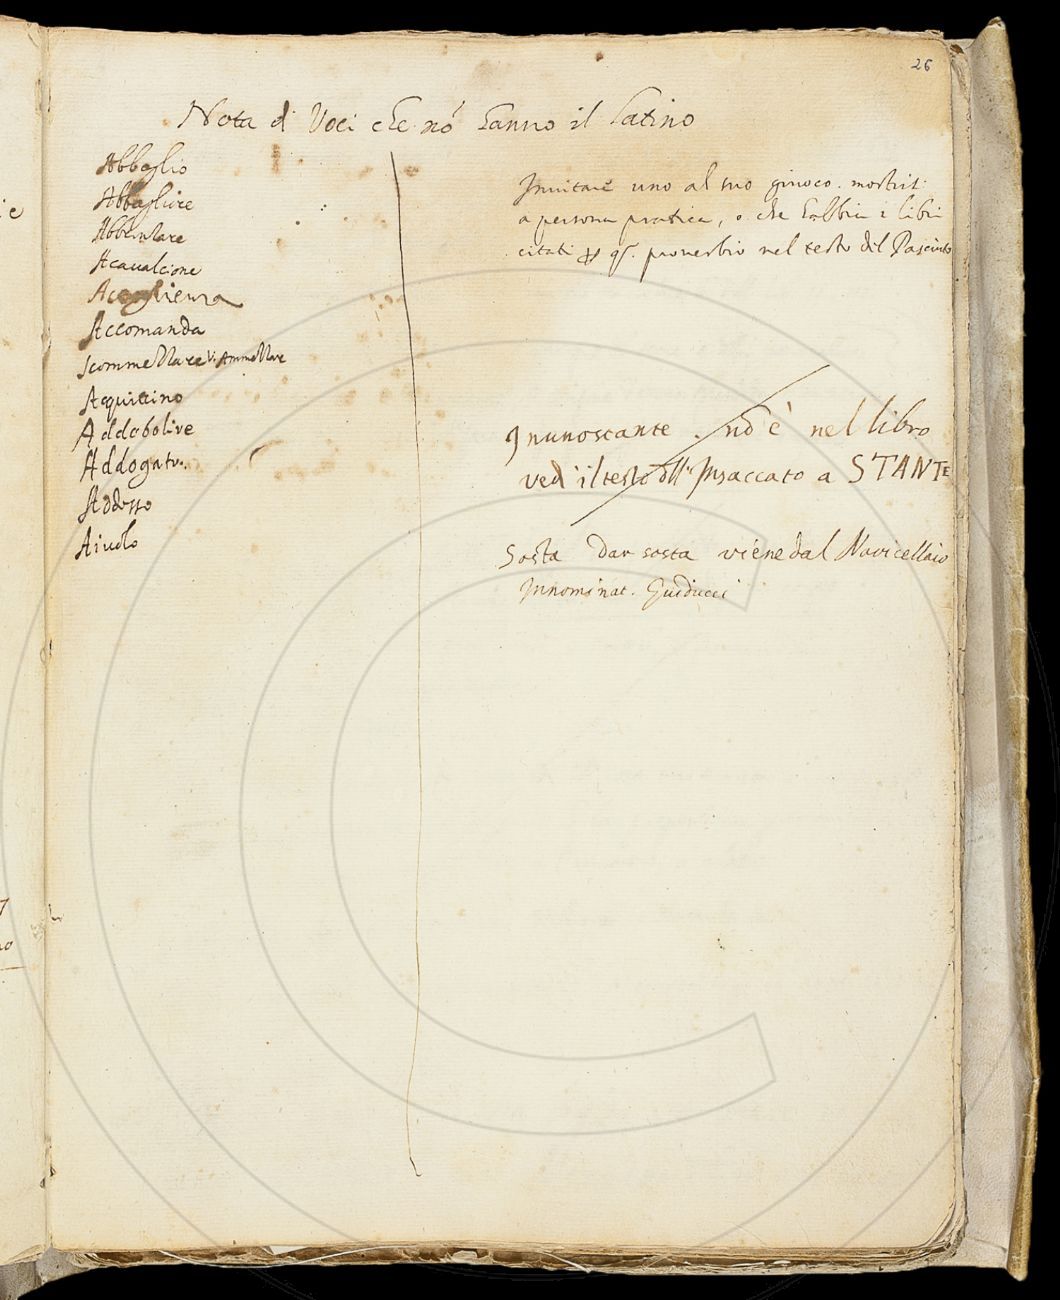 26
Nota di Voci che nō hanno il latino
Abbaglio
Abbaglire
Abbentare
Acavalcione
Accomanda
Scommettere V. Ammettare
Acquiccino
Addobolire
Addogato.
Addosso
Aiuolo
Inuitare uno al suo giuoco. mostrist:
a persona pratica, o che habbia i libri
citati qr. prouerbio nel testo del Pasciuto
Inunostante. nō è nel libro
ved il testo dll' Insaccato a STANTE
Sosta Dar sosta viene dal Nauicellaio
Innominat. Guiducci